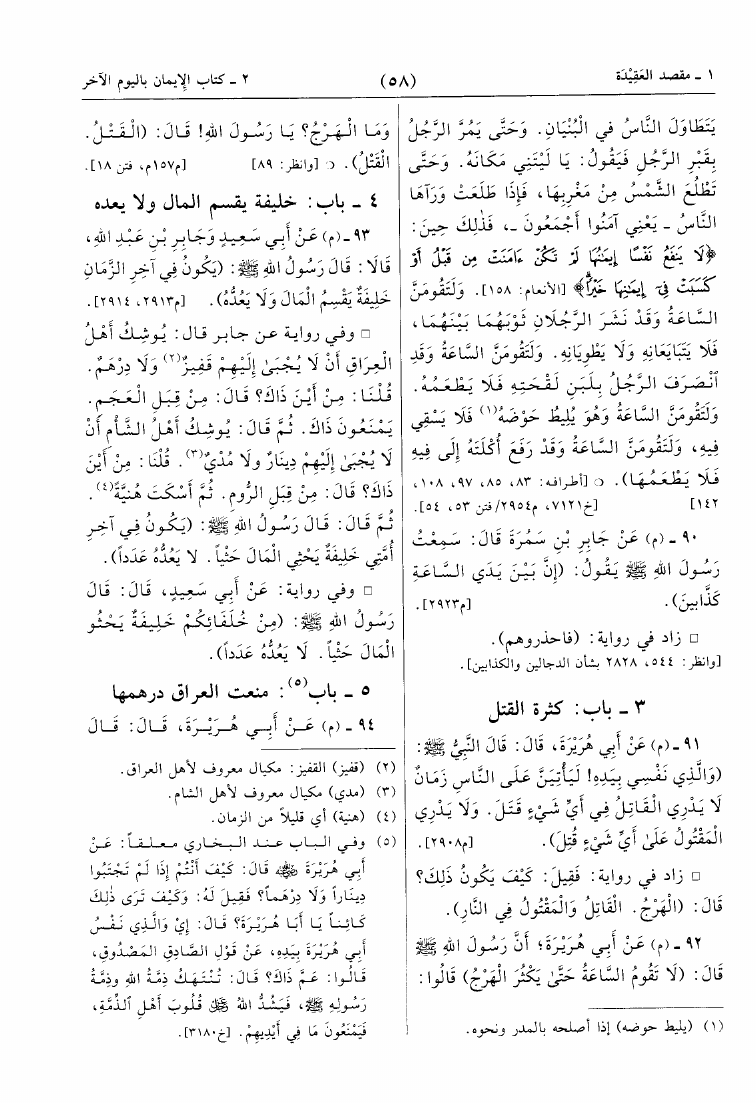 ١ ـ مقصد العَقِيْدَة
(٥٨)
٢ ـ كتاب الإيمان باليوم الآخر
يَتَطَاوَلَ النَّاسُ في الْبُنْيَانِ. وَحَتَّى يَمُرَّ الرَّجُلُ
بِقَبْرِ الرَّجُلِ فَيَقُولُ: يَا لَيْتَنِي مَكَانَهُ. وَحَتَّى
تَطْلُعَ الشَّمْسُ مِنْ مَغْرِبِهَا، فَإِذَا طَلَعَتْ وَرَآهَا
النَّاسُ ـ يَعْنِي آمَنُوا أَجْمَعُونَ ـ، فَذٰلِكَ حِينَ:
﴿لَا يَنفَعُ نَفْسًا إِيمَنُهَا لَمْ تَكُنْ ءَامَنَتْ مِن قَبْلُ أَوْ
كَسَبَتْ فِىٓ إِيمَنِهَا خَيْرًا﴾ [الأنعام: ١٥٨]. وَلَتَقُومَنَّ
السَّاعَةُ وَقَدْ نَشَرَ الرَّجُلَانِ ثَوْبَهُمَا بَيْنَهُمَا،
فَلَا يَتَبَايَعَانِهِ وَلَا يَطْوِيَانِهِ. وَلَتَقُومَنَّ السَّاعَةُ وَقَدِ
ٱنْصَرَفَ الرَّجُلُ بِلَبَنِ لَقْحَتِهِ فَلَا يَطْعَمُهُ.
وَلَتَقُومَنَّ السَّاعَةُ وَهُوَ يُلِيطُ حَوْضَهُ(١) فَلَا يَسْقِي
فِيهِ، وَلَتَقُومَنَّ السَّاعَةُ وَقَدْ رَفَعَ أُكْلَتَهُ إِلَى فِيهِ
فَلَا يَطْعَمُهَا). ○ [أطرافه: ٨٣، ٨٥، ٩٧، ١٠٨،
١٤٢] [خ٧١٢١، م٢٩٥٤/فتن ٥٣، ٥٤].
٩٠ ـ (م) عَنْ جَابِرِ بْنِ سَمُرَةَ قَالَ: سَمِعْتُ
رَسُولَ اللهِ ﷺ يَقُولُ: (إِنَّ بَيْنَ يَدَيِ السَّاعَةِ
كَذَّابِينَ). [م٢٩٢٣].
□ زاد في رواية: (فاحذروهم).
[وانظر: ٥٤٤، ٢٨٢٨ بشأن الدجالين والكذابين].
٣ ـ باب: كثرة القتل
٩١ ـ (م) عَنْ أَبِي هُرَيْرَةَ، قَالَ: قَالَ النَّبِيُّ ﷺ:
(وَالَّذِي نَفْسِي بِيَدِهِ! لَيَأْتِيَنَّ عَلَى النَّاسِ زَمَانٌ
لَا يَدْرِي الْقَاتِلُ فِي أَيِّ شَيْءٍ قَتَلَ. وَلَا يَدْرِي
الْمَقْتُولُ عَلَىٰ أَيِّ شَيْءٍ قُتِلَ). [م٢٩٠٨].
□ زاد في رواية: فَقِيلَ: كَيْفَ يَكُونُ ذَلِكَ؟
قَالَ: (الْهَرْجُ. الْقَاتِلُ وَالْمَقْتُولُ فِي النَّارِ).
٩٢ ـ (م) عَنْ أَبِي هُرَيْرَةَ؛ أَنَّ رَسُولَ اللهِ ﷺ
قَالَ: (لَا تَقُومُ السَّاعَةُ حَتَّىٰ يَكْثُرَ الْهَرْجُ) قَالُوا:
(١) (يليط حوضه) إذا أصلحه بالمدر ونحوه.
وَمَا الْهَرْجُ؟ يَا رَسُولَ اللهِ! قَالَ: (الْقَتْلُ.
الْقَتْلُ). ○ [وانظر: ٨٩] [م١٥٧م، فتن ١٨].
٤ ـ باب: خليفة يقسم المال ولا يعده
٩٣ ـ (م) عَنْ أَبِي سَعِيدٍ وَجَابِرِ بْنِ عَبْدِ اللهِ،
قَالَا: قَالَ رَسُولُ اللهِ ﷺ: (يَكُونُ فِي آخِرِ الزَّمَانِ
خَلِيفَةٌ يَقْسِمُ الْمَالَ وَلَا يَعُدُّهُ). [م٢٩١٣، ٢٩١٤].
□ وفي رواية عن جابر قال: يُوشِكُ أَهْلُ
الْعِرَاقِ أَنْ لَا يُجْبَىٰ إِلَيْهِمْ قَفِيزٌ(٢) وَلَا دِرْهَمٌ.
قُلْنَا: مِنْ أَيْنَ ذَاكَ؟ قَالَ: مِنْ قِبَلِ الْعَجَمِ.
يَمْنَعُونَ ذَاكَ. ثُمَّ قَالَ: يُوشِكُ أَهْلُ الشَّأْمِ أَنْ
لَا يُجْبَىٰ إِلَيْهِمْ دِينَارٌ وَلَا مُدْيٌ(٣). قُلْنَا: مِنْ أَيْنَ
ذَاكَ؟ قَالَ: مِنْ قِبَلِ الرُّومِ. ثُمَّ أَسْكَتَ هُنَيَّةً(٤).
ثُمَّ قَالَ: قَالَ رَسُولُ اللهِ ﷺ: (يَكُونُ فِي آخِرِ
أُمَّتِي خَلِيفَةٌ يَحْثِي الْمَالَ حَثْياً. لا يَعُدُّهُ عَدَداً).
□ وفي رواية: عَنْ أَبِي سَعِيدٍ، قَالَ: قَالَ
رَسُولُ اللهِ ﷺ: (مِنْ خُلَفَائِكُمْ خَلِيفَةٌ يَحْثُو
الْمَالَ حَثْياً. لَا يَعُدُّهُ عَدَداً).
٥ ـ باب(٥): منعت العراق درهمها
٩٤ ـ (م) عَنْ أَبِي هُرَيْرَةَ، قَالَ: قَالَ
(٢) (قفيز) القفيز: مكيال معروف لأهل العراق.
(٣) (مدي) مكيال معروف لأهل الشام.
(٤) (هنية) أي قليلاً من الزمان.
(٥) وفي الباب عند البخاري معلقاً: عَنْ
أَبِي هُرَيْرَةَ رضي الله عنه قَالَ: كَيْفَ أَنْتُمْ إِذَا لَمْ تَجْتَبُوا
دِينَاراً وَلَا دِرْهَماً؟ فَقِيلَ لَهُ: وَكَيْفَ تَرَى ذٰلِكَ
كَائِناً يَا أَبَا هُرَيْرَةَ؟ قَالَ: إِيْ وَالَّذِي نَفْسُ
أَبِي هُرَيْرَةَ بِيَدِهِ، عَنْ قَوْلِ الصَّادِقِ المَصْدُوقِ،
قَالُوا: عَمَّ ذَاكَ؟ قَالَ: تُنْتَهَكُ ذِمَّةُ اللهِ وَذِمَّةُ
رَسُولِهِ ﷺ، فَيَشُدُّ اللهُ عز وجل قُلُوبَ أَهْلِ ٱلذِّمَّةِ،
فَيَمْنَعُونَ مَا فِي أَيْدِيهِمْ. [خ٣١٨٠].